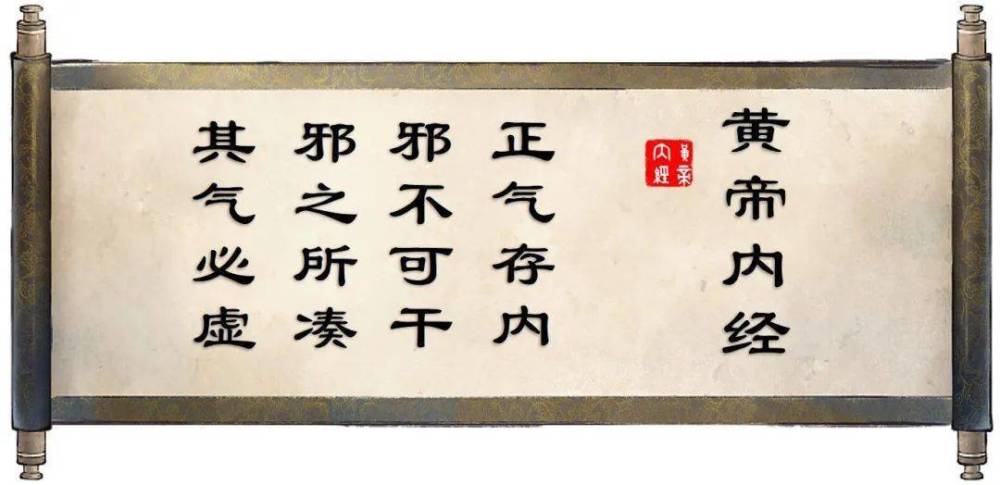 黄帝内经
黄帝
内經
正气存内
邪不可干
邪之所凑
其气必虚